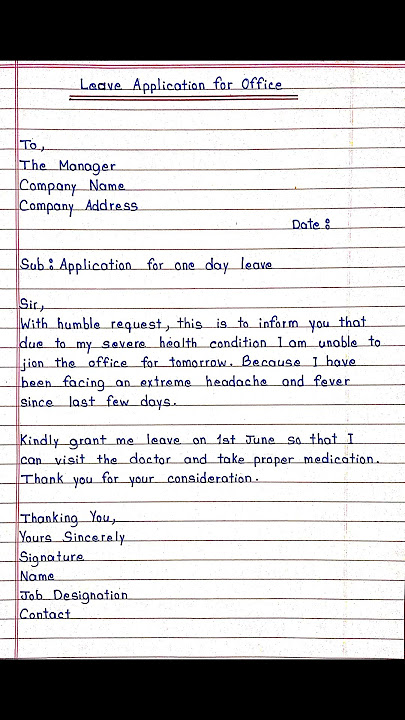 Leave Application for Office
To,
The Manager
Company Name
Company Address
Date :
Sub : Application for one day leave
Sir,
With humble request, this is to inform you that
due to my severe health condition I am unable to
jion the office for tomorrow. Because I have
been facing an extreme headache and fever
since last few days.
Kindly grant me leave on 1st June so that I
can visit the doctor and take proper medication.
Thank you for your consideration.
Thanking You,
Yours Sincerely
Signature
Name
Job Designation
Contact